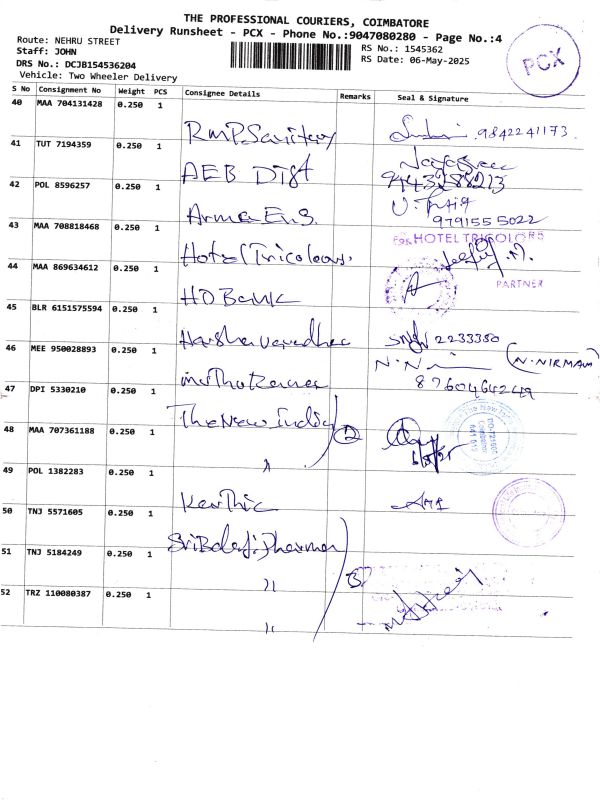 THE PROFESSIONAL COURIERS, COIMBATORE
Delivery Runsheet - PCX - Phone No.:9047080280 - Page No.:4
Route: NEHRU STREET
RS No.: 1545362
Staff: JOHN
RS Date: 06-May-2025
DRS No.: DCJB154536204
PCX
Vehicle: Two Wheeler Delivery
S No Consignment No Weight PCS Consignee Details Remarks Seal & Signature
40 MAA 704131428 0.250 1 RMP Sanitary 9842241173
41 TUT 7194359 0.250 1 AEB Dist 9443288213
42 POL 8596257 0.250 1 Arma Eng. 9791555022
43 MAA 708818468 0.250 1 Hotel Tricolours. For HOTEL TRICOLORS
PARTNER
44 MAA 869634612 0.250 1 HD Bank
45 BLR 6151575594 0.250 1 2233350
46 MEE 950028893 0.250 1 N.N (N.NIRMAM)
8760464249
47 DPI 5330210 0.250 1 The New India 2
48 MAA 707361188 0.250 1 〃 6/5/25
49 POL 1382283 0.250 1 Karthic
50 TNJ 5571605 0.250 1 Sri Balaji Dharman
51 TNJ 5184249 0.250 1 〃 3
52 TRZ 110080387 0.250 1 〃